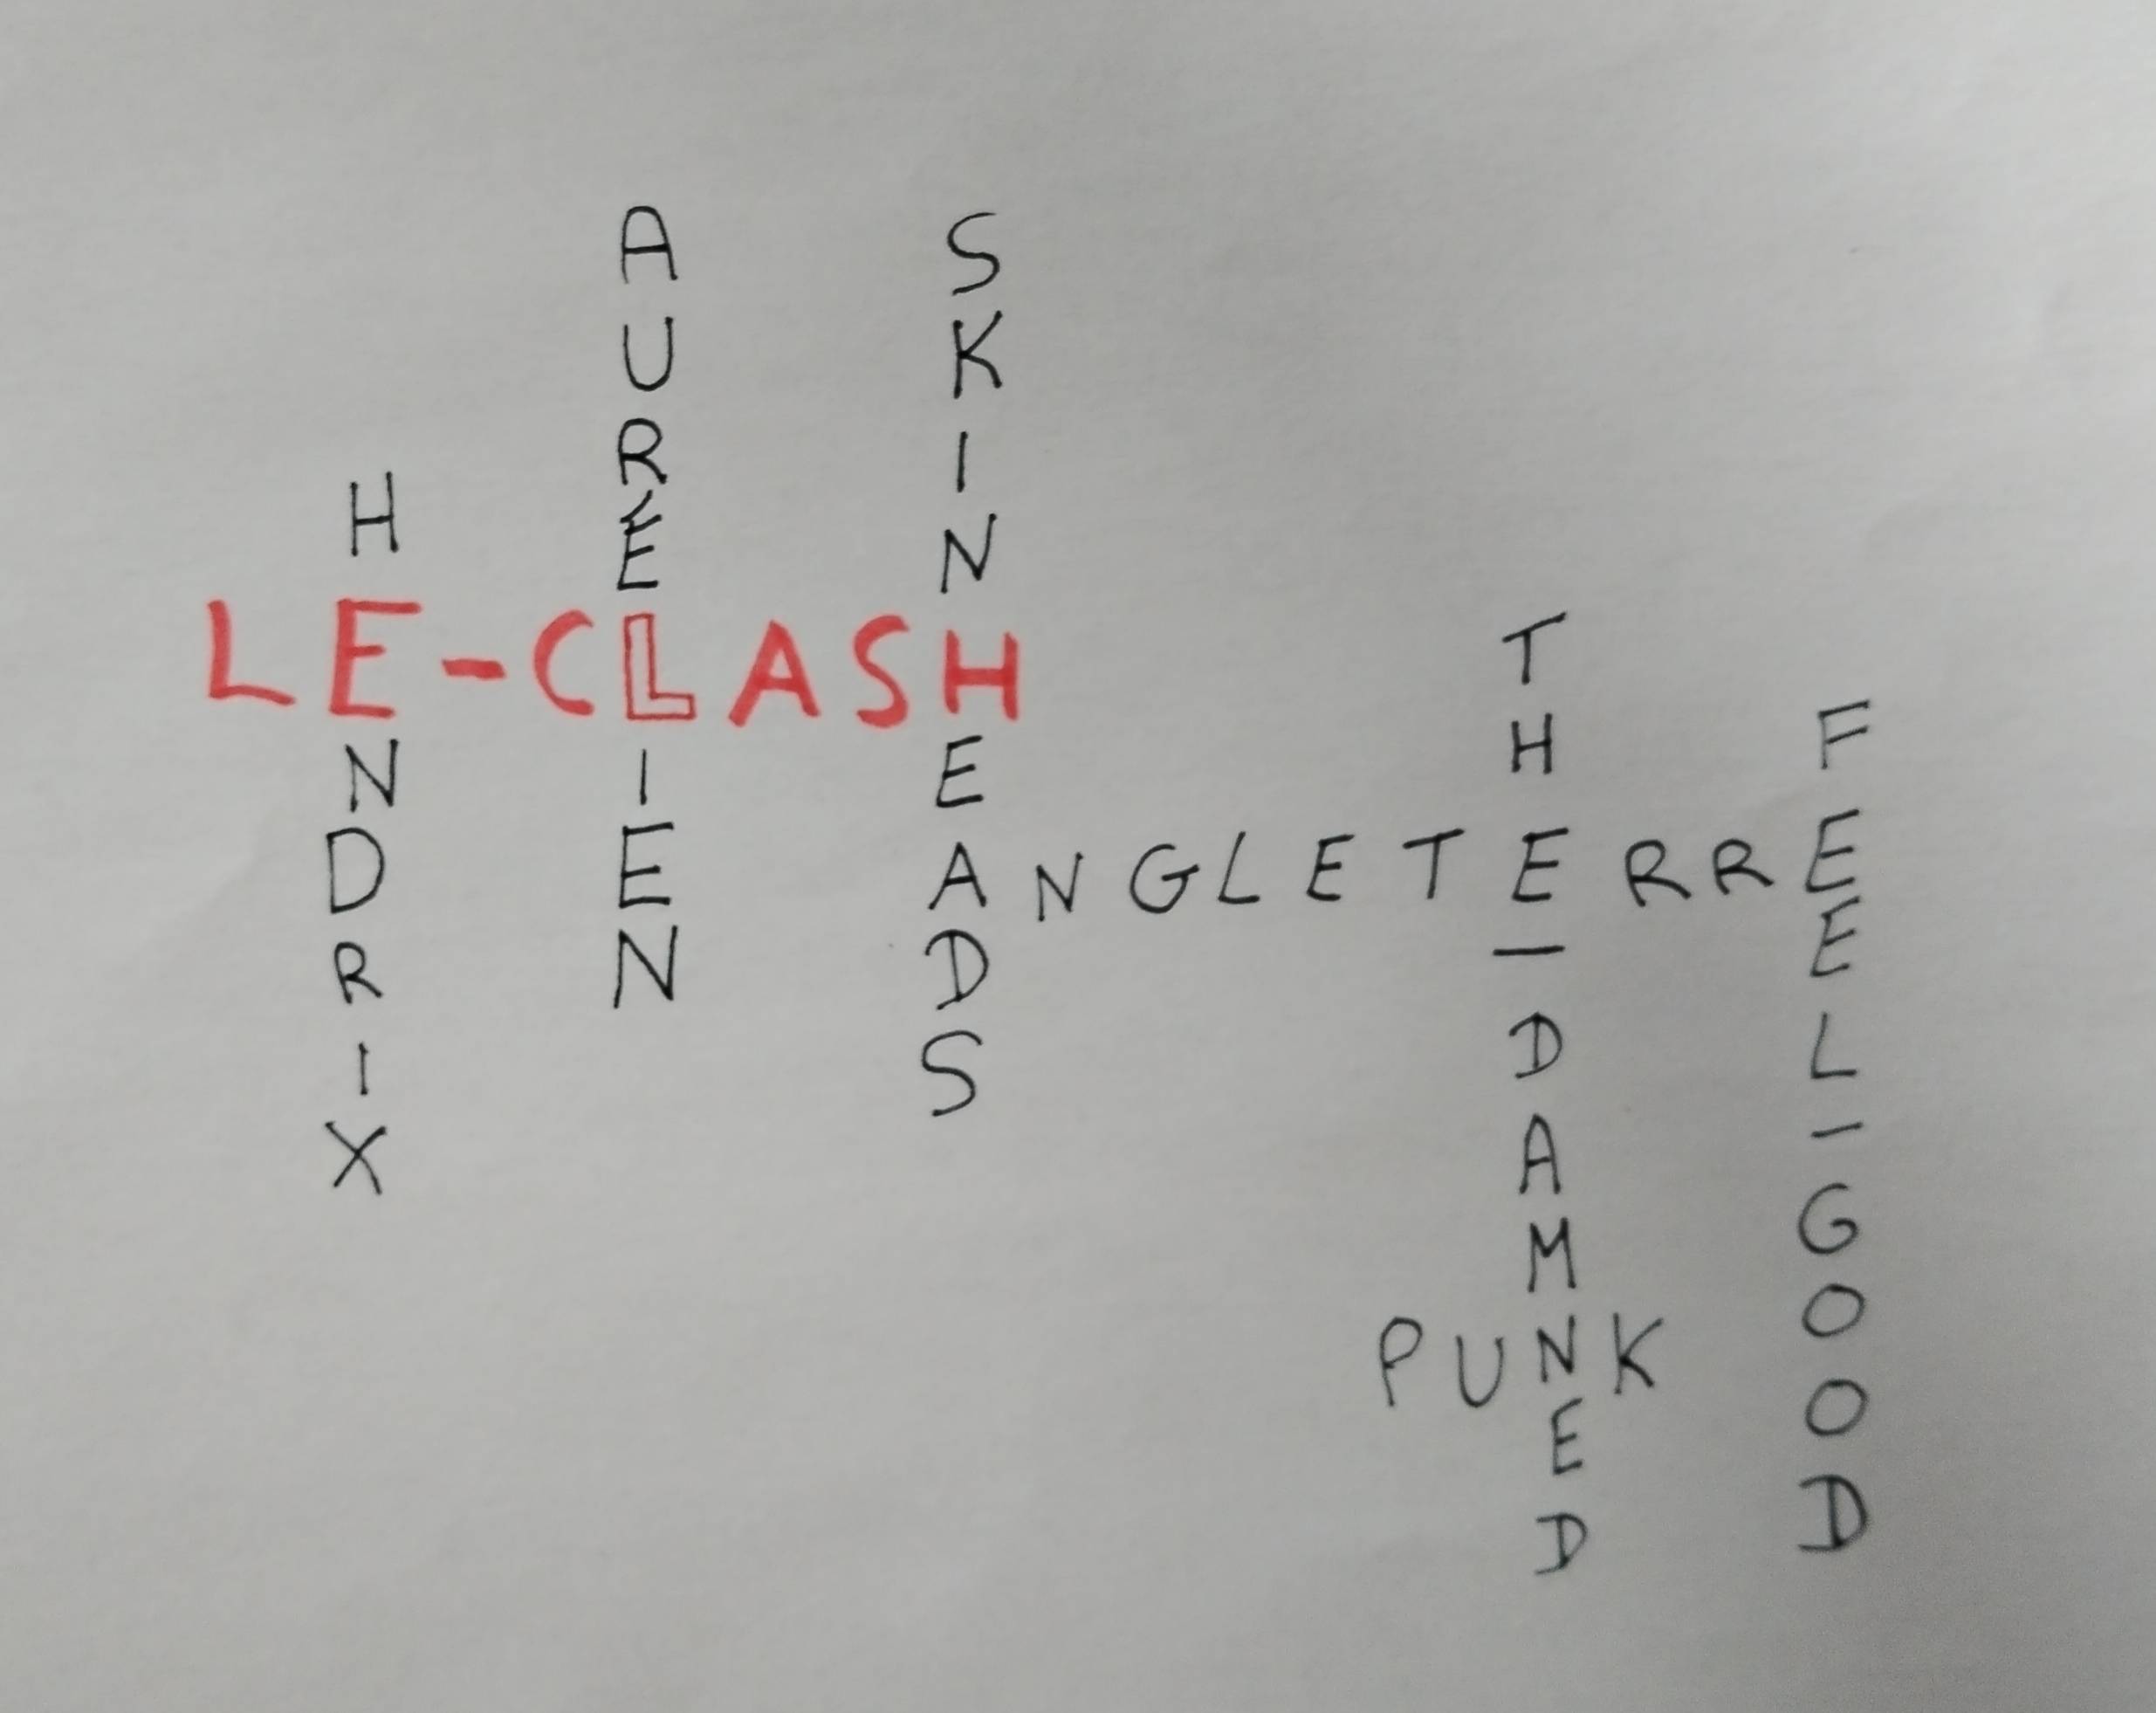 HENDRIX
AURÉLIEN
SKINHEADS
LE-CLASH
ANGLETERRE
THE-DAMNED
FEEL-GOOD
PUNK